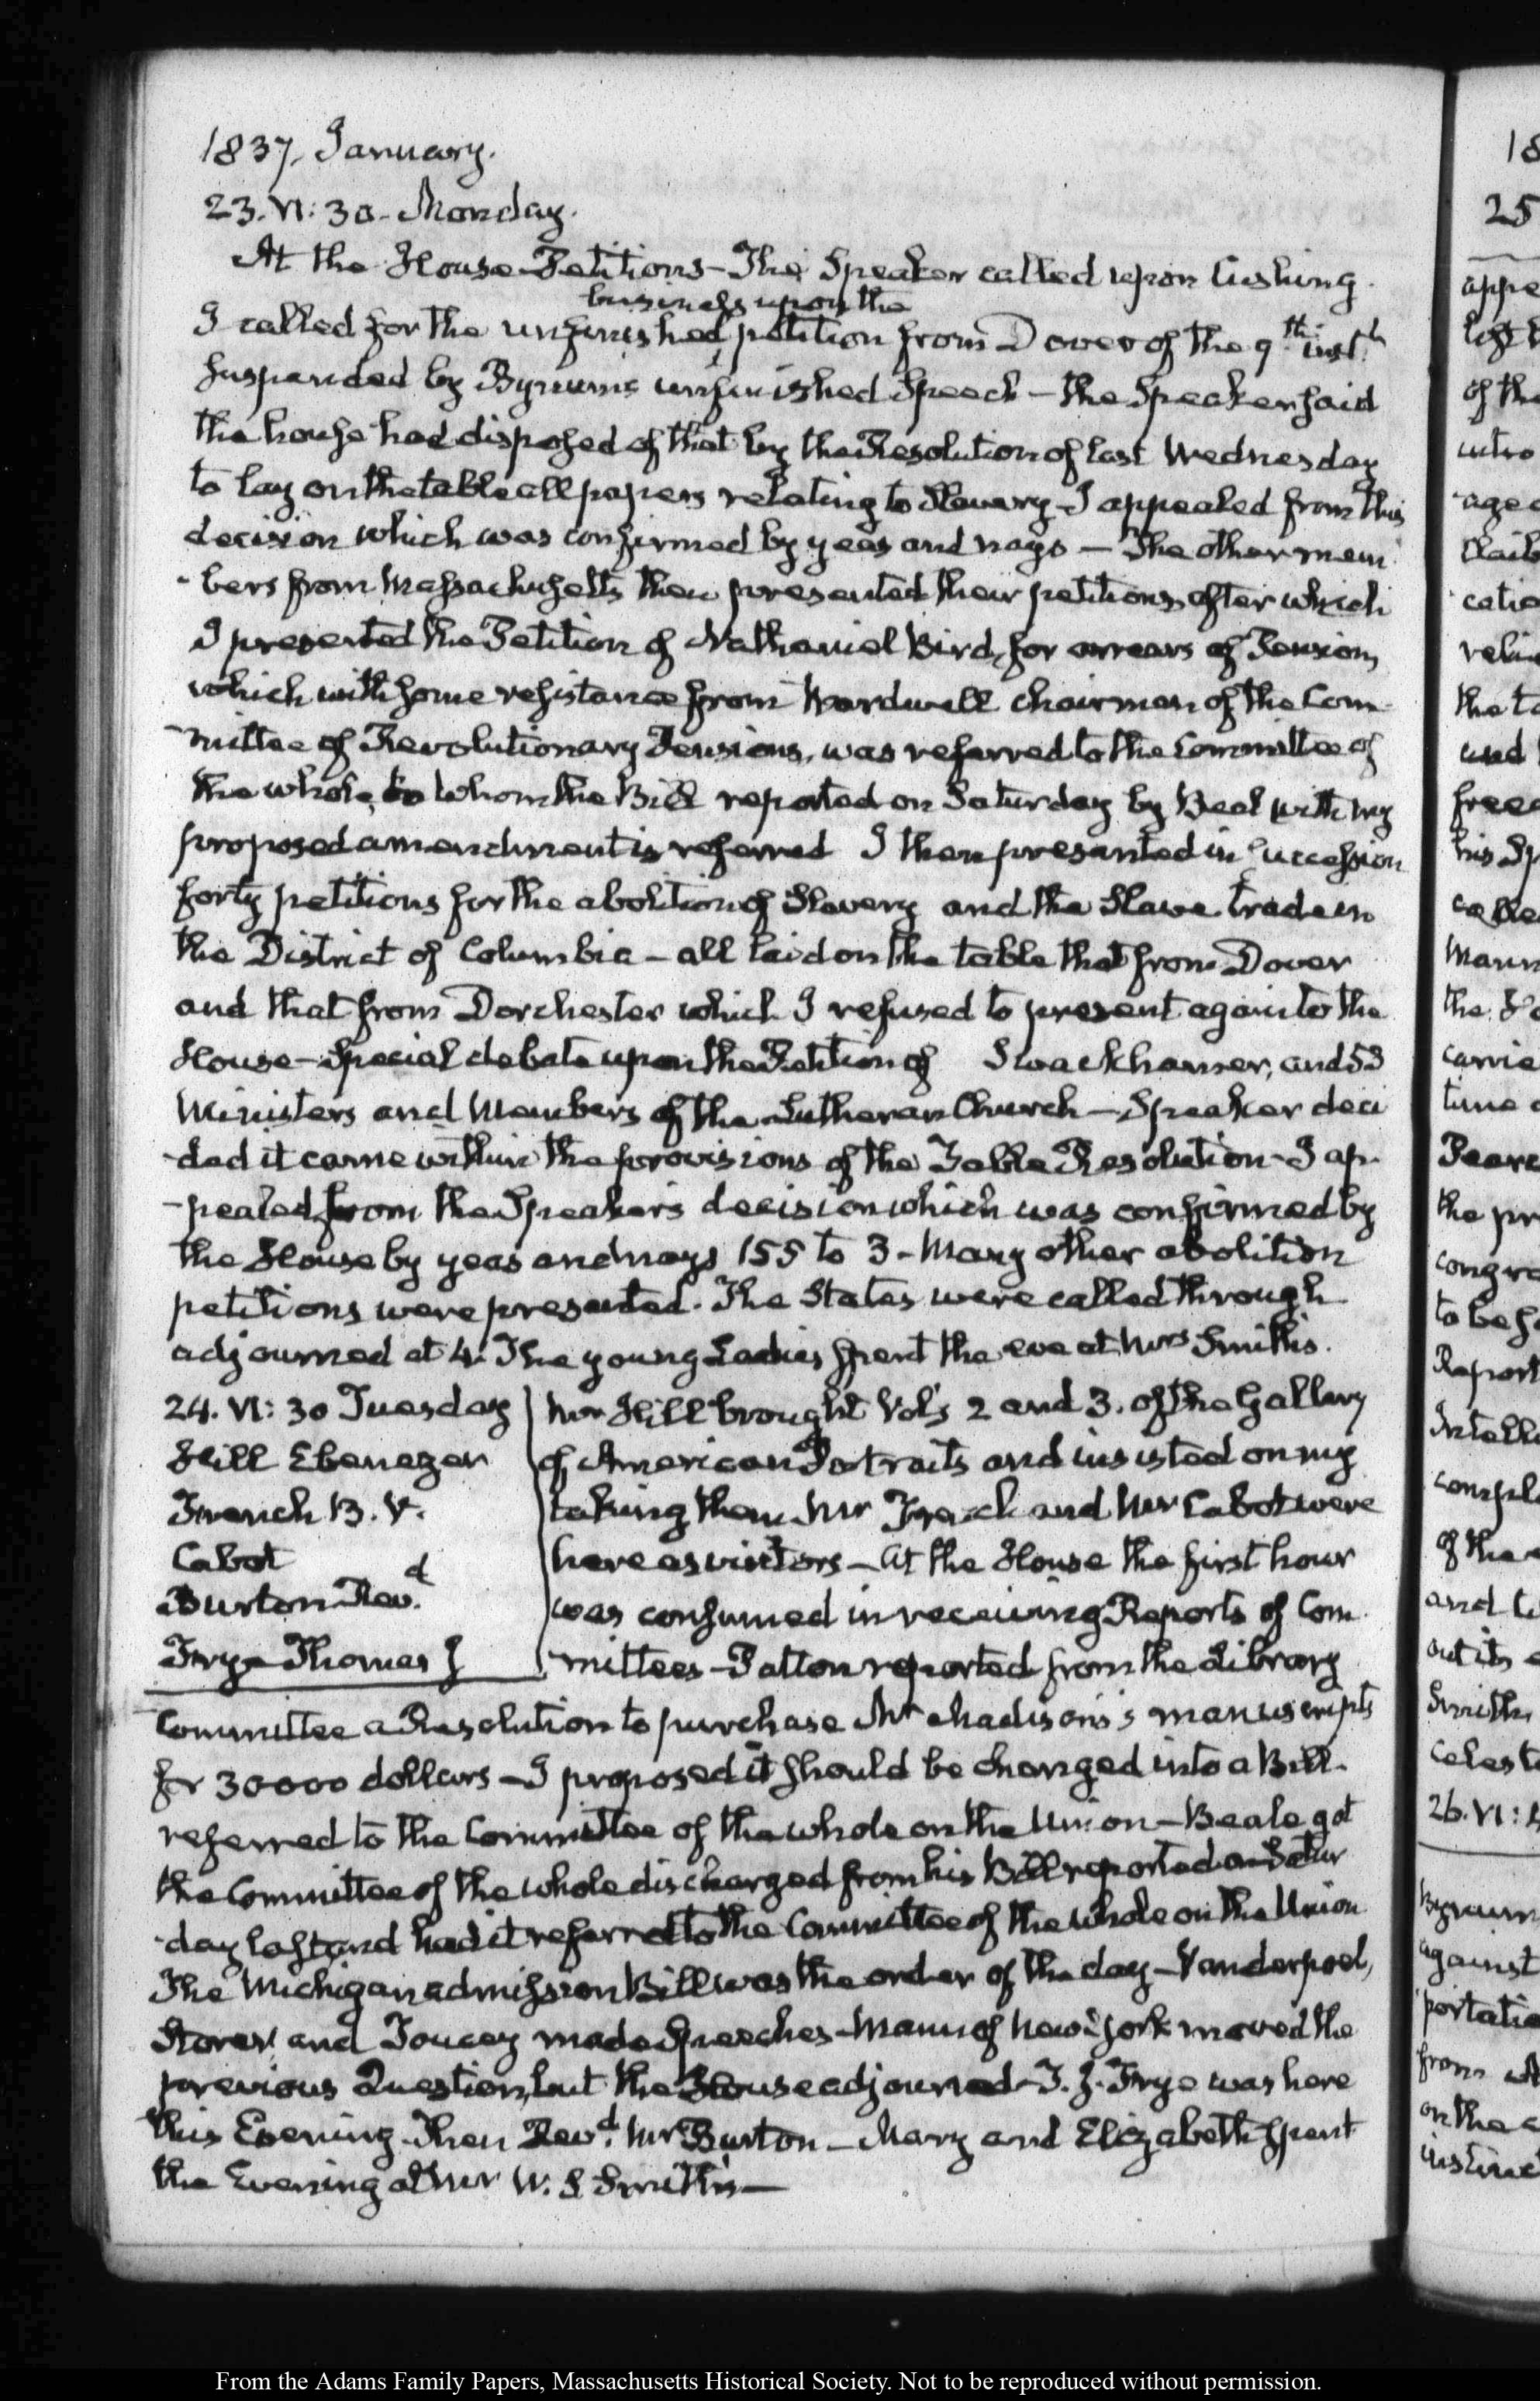 1837. January.
23. VI:30. Monday.
At the House Petitions – The Speaker called upon Cushing.
business upon the
I called for the unfinished petition from Dover of the 9th. inst.t
suspended by Bynum's unfinished Speech – the Speaker said
the house had disposed of that by the Resolution of last Wednesday
to lay on the table all papers relating to Slavery – I appealed from this
decision which was confirmed by yeas and nays – The other mem
-bers from Massachusetts then presented their petitions, after which
I presented the Petition of Nathaniel Bird, for arrears of Pension,
which with some resistance from Wardwell chairman of the Com-
-mittee of Revolutionary Pensions, was referred to the Committee of
the whole, to whom the Bill reported on Saturday by Beal with my
proposed amendment is referred I then presented in succession
forty petitions for the abolition of Slavery and the Slave trade in
the District of Columbia – all laid on the table that from Dover
and that from Dorchester which I refused to present again to the
House – Special debate upon the Petition of Swackhamer, and 53
Ministers and Members of the Lutheran Church – Speaker deci
-ded it came within the provisions of the Table Resolution – I ap-
-pealed from the Speaker's decision which was confirmed by
the House by yeas and nays 155 to 3 – Many other abolition
petitions were presented. The States were called through
adjourned at 4. The young Ladies spent the eve at Mrs Smith's.
24. VI:30 Tuesday
Hill Ebenezer
French B. V.
Cabot
Burton Rev.d
Frye Thomas J
Mr Hill brought Vol's 2 and 3. of the Gallery
of American Portraits and insisted on my
taking them. Mr French and Mr Cabot were
here as visitors – At the House the first hour
was consumed in receiving Reports of Com-
-mittees – Patton reported from the Library
Committee a Resolution to purchase Mr Madison's manuscripts
for 30000 dollars – I proposed it should be changed into a Bill.
referred to the Committee of the whole on the Union – Beale got
the Committee of the whole discharged from his Bill reported on Satur
-day last, and had it referred to the Committee of the whole on the Union
The Michigan admission Bill was the order of the day – Vanderpoel,
Storer and Toucey made Speeches – Mann of New York moved the
previous Question, but the House adjourned – T. J. Frye was here
this Evening. Then Rev.d Mr Burton – Mary and Elizabeth spent
the Evening at Mr W. S Smith's –
18
25
appe
of the
intro
age
catio
the
and
free
his Sp
calle
Mann
the
carrie
time
Pearc
the pr
congre
to be
Report
Intelli
of the
and
out its
Smith
Celest
26. VI:
Bynum
against
portatio
from
on the
instruc
From the Adams Family Papers, Massachusetts Historical Society. Not to be reproduced without permission.